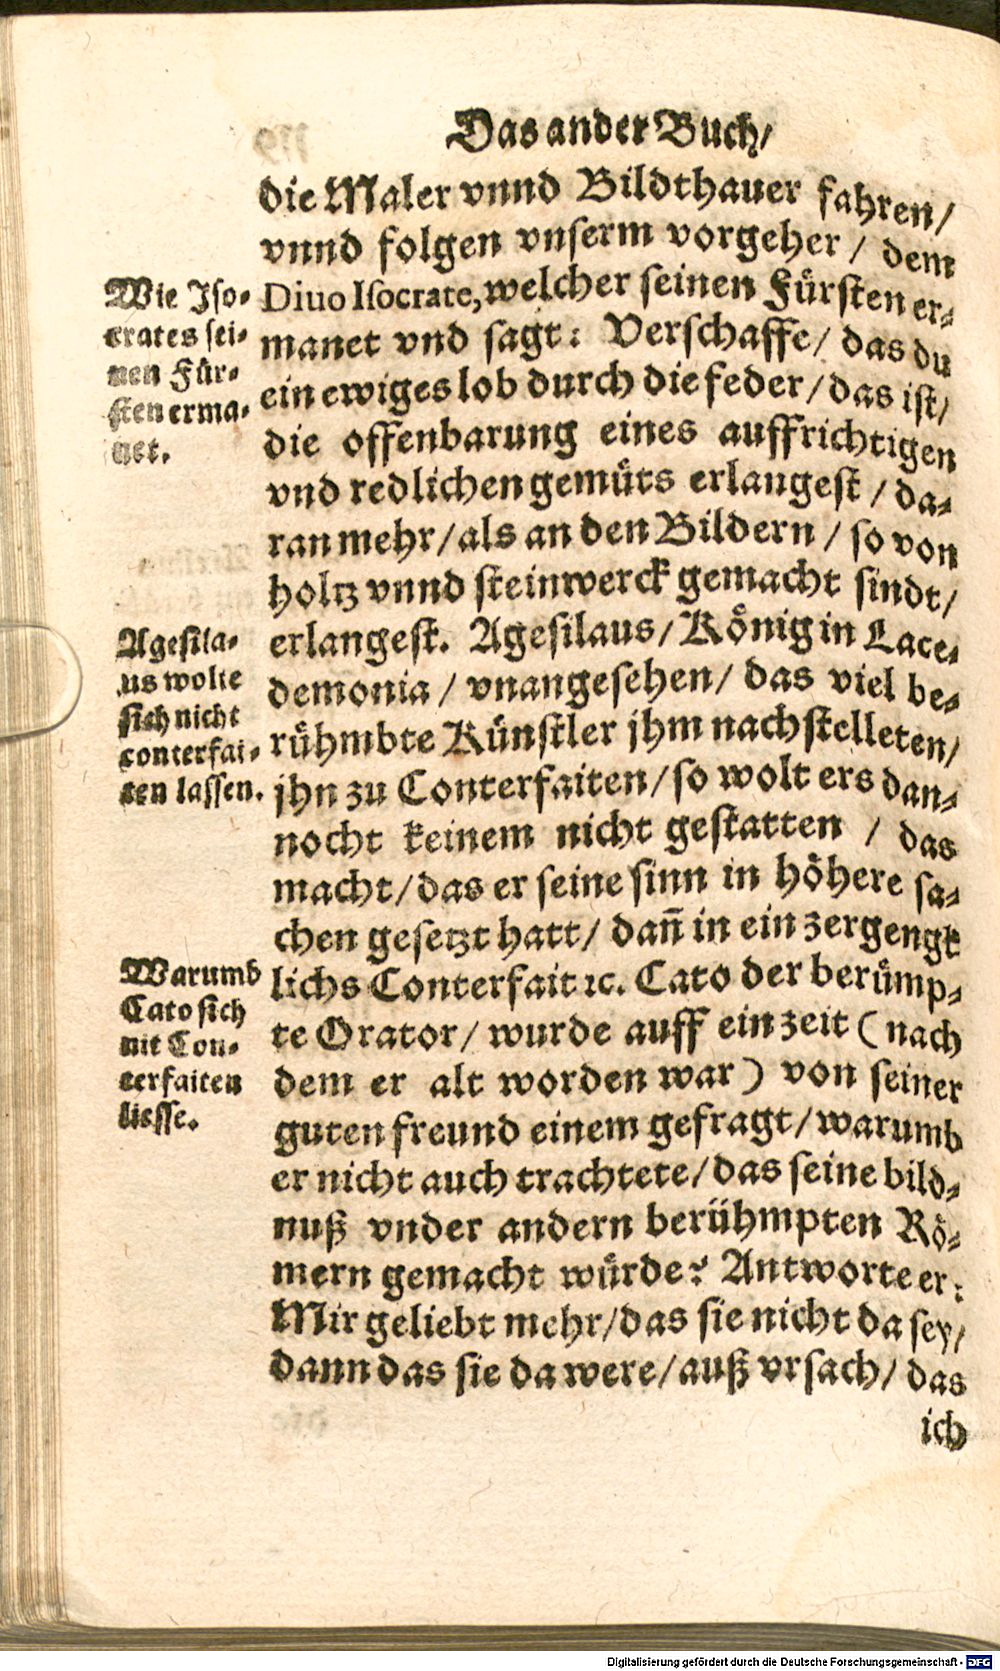 Das ander Buch/
die Maler vnnd Bildthauer fahren/
vnnd folgen vnserm vorgeher / dem
Diuo Isocrate, welcher seinen Fürsten er-
manet vnd sagt: Verschaffe / das du
ein ewiges lob durch die feder / das ist/
die offenbarung eines auffrichtigen
vnd redlichen gemüts erlangest / da-
ran mehr / als an den Bildern / so von
holtz vnnd steinwerck gemacht sindt/
erlangest. Agesilaus / König in Lace-
demonia / vnangesehen / das viel be-
rühmbte Künstler jhm nachstelleten/
jhn zu Conterfaiten / so wolt ers dan-
nocht keinem nicht gestatten / das
macht / das er seine sinn in höhere sa-
chen gesetzt hatt / dañ in ein zergengk
lichs Conterfait ꝛc. Cato der berümp-
te Orator / wurde auff ein zeit (nach
dem er alt worden war) von seiner
guten freund einem gefragt / warumb
er nicht auch trachtete / das seine bild-
nuß vnder andern berühmpten Rö-
mern gemacht würde? Antworte er:
Mir geliebt mehr / das sie nicht da sey/
dann das sie da were / auß vrsach / das
ich
Wie Iso-
crates sei-
nen Für-
sten erma-
net.
Agesila-
us wolte
sich nicht
conterfai-
ten lassen.
Warumb
Cato sich
nit Con-
terfaiten
liesse.
Digitalisierung gefördert durch die Deutsche Forschungsgemeinschaft - DFG